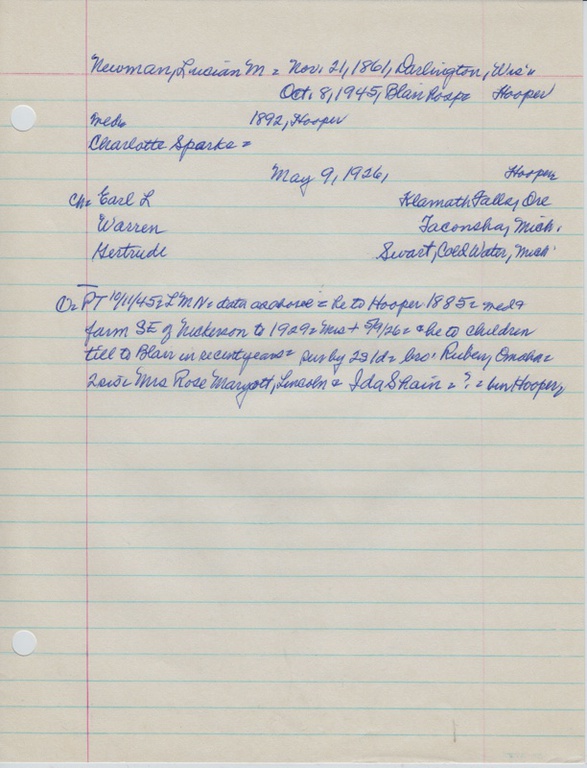 Newman, Lucian M = Nov. 21, 1861, Darlington, Wis
Oct. 8, 1945, Blair Hosp Hooper
md 1892, Hooper
Charlotte Sparks =
May 9, 1926, Hooper
Ch = Earl L Klamath Falls, Ore
Warren Taconsha, Mich.
Gertrude Swart, Cold Water, Mich
O = PT 10/11/45 = L M N = data as above = he to Hooper 1885 = md &
farm SE of Nickerson to 1929 = Mrs + 5/9/26 = & he to children
till to Blair in recent years = sur by 2s 1d = bro: Ruben, Omaha =
2 sis = Mrs Rose Maryott, Lincoln & Ida Shain = ? = bur Hooper